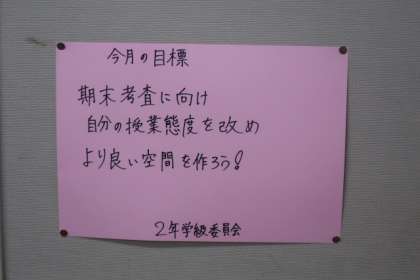 今月の目標
期末考査に向け
自分の授業態度を改め
より良い空間を作ろう!
2年学級委員会